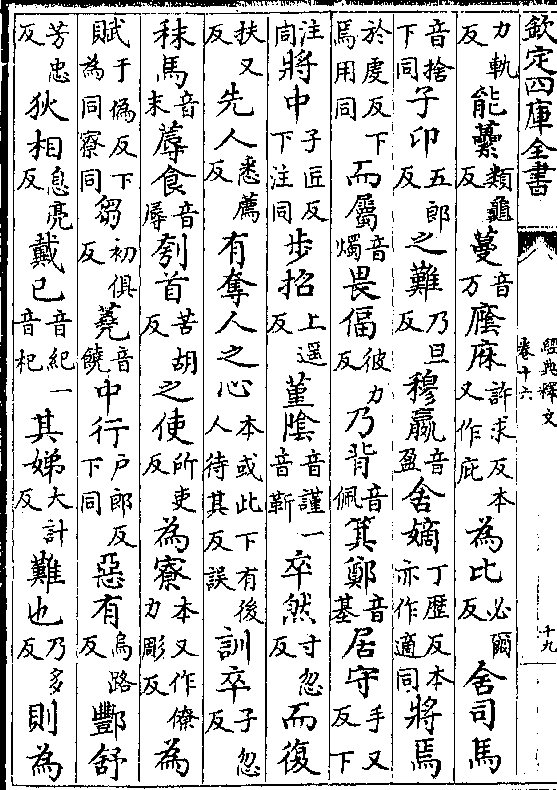 欽定四庫全書
經典釋文
卷十六
十九
力軌反能虆類龜反蔓音万廕庥許求反本又作庇為比必爾反舍司馬
音捨下同子卬五郎反之難乃旦反穆嬴音盈舍嫡丁歷反本亦作適同將焉
於虔反下焉用同而屬音燭畏偪彼力反乃背音佩箕鄭音基居守手又反下
注同將中子匠反下注同步招上遥反菫隂音謹一音靳卒然寸忽反而復
扶又反先人悉薦反有奪人之心本或此下有後人待其反誤訓卒子忽反
秣馬音末蓐食音辱刳首苦胡反之使所吏反為寮本又作僚力彫反為
賦于偽反下為同寮同芻初俱反蕘音饒中行户郎反下同惡有烏路反酆舒
芳忠反狄相息亮反戴已音紀一音杞其娣大計反難也乃多反則為